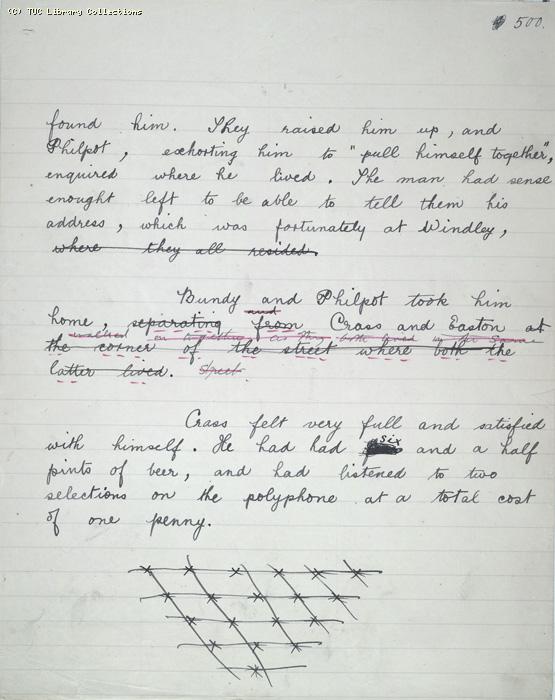 (C) TUC Library Collections
500.
found him. They raised him up, and
Philpot, exhorting him to "pull himself together",
enquired where he lived. The man had sense
enought left to be able to tell them his
address, which was fortunately at Windley,
where they all resided.
Bundy and Philpot took him
and
home, separating from Crass and Easton at
walked on together as they both lived in the same
the corner of the street where both the
latter lived. Street
Crass felt very full and satisfied
six
with himself. He had had and a half
pints of beer, and had listened to two
selections on the polyphone at a total cost
of one penny.